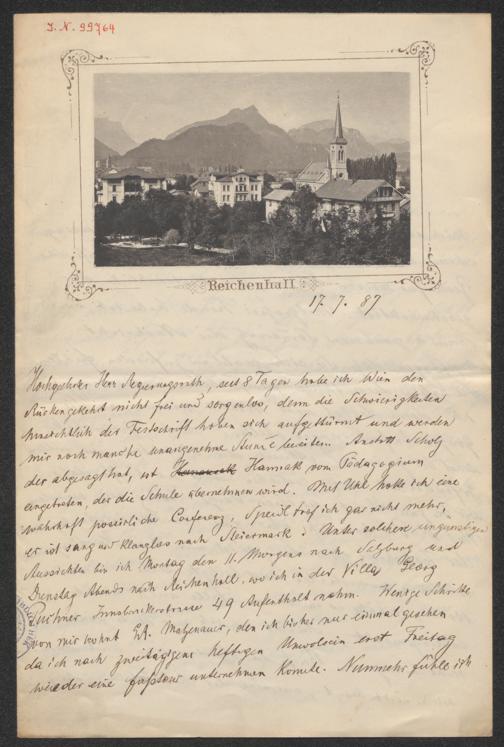 I. N. 99764
Reichenhall
17. 7. 87
Hochgeehrter Herr Regierungsrath, seit 8 Tagen habe ich Wien den
Rücken gekehrt nicht frei und sorgenlos, denn die Schwierigkeiten
hinsichtlich der Festschrift haben sich aufgethürmt und werden
mir noch manche unangenehme Stunde bereiten. Anstatt Scholz
der abgesagt hat, ist Hannak vom Pädagogium
eingetreten, der die Schule übernehmen wird. Mit Uhl hatte ich eine
wahrhaft possirliche Conferenz, Speidl traf ich gar nicht mehr,
er ist sang und klanglos nach Steiermark. Unter solchen ungünstigen
Aussichten bin ich Montag den 11. Morgens nach Salzburg und
Dienstag Abends nach Reichenhall, wo ich in der Villa Georg
Puchner Innsbruckerstrasse 49 Aufenthalt nahm. Wenige Schritte
von mir wohnt Matzenauer, den ich bisher nur einmal gesehen
da ich nach zweitägigem heftigen Unwolsein erst Freitag
wieder eine unternehmen konnte. Nunmehr fühle ich